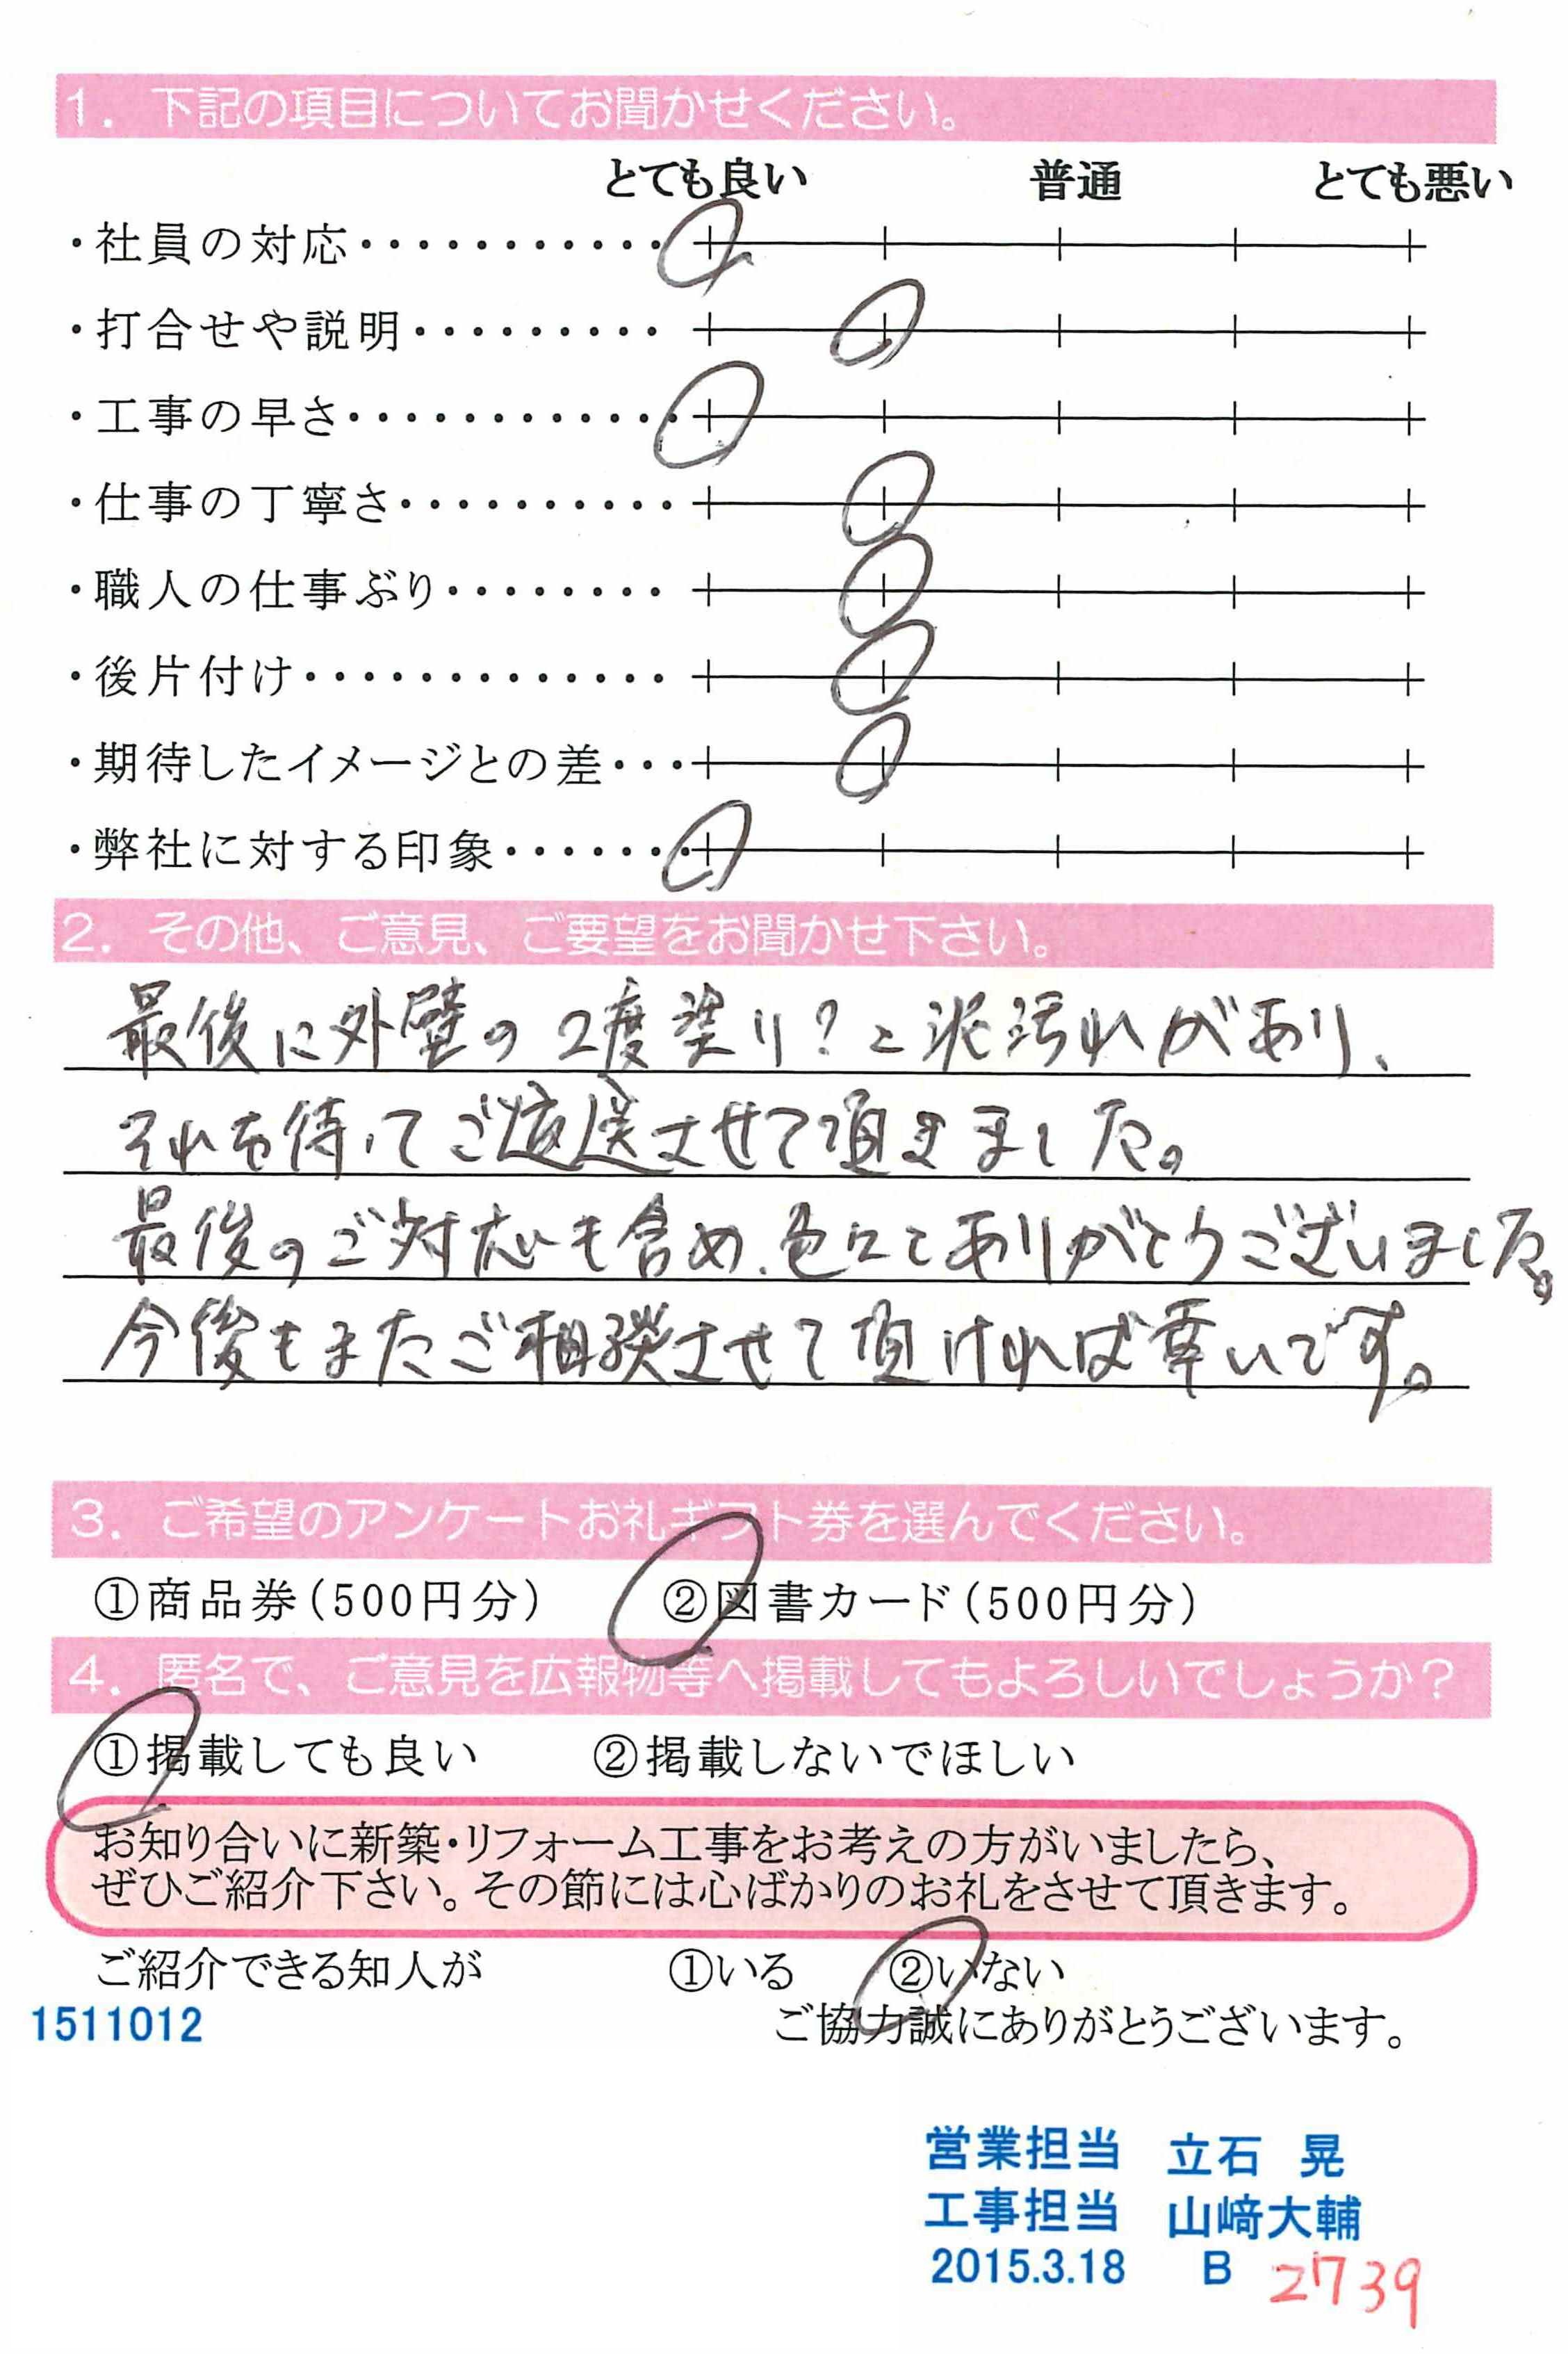 1. 下記の項目についてお聞かせください。
とても良い 普通 とても悪い
・社員の対応・・・・・・・・・・・
・打合せや説明・・・・・・・・・
・工事の早さ・・・・・・・・・・・・
・仕事の丁寧さ・・・・・・・・・・
・職人の仕事ぶり・・・・・・・・
・後片付け・・・・・・・・・・・・・
・期待したイメージとの差・・・
・弊社に対する印象・・・・・・・
2. その他、ご意見、ご要望をお聞かせ下さい。
最後に外壁の2度塗り?と泥汚れがあり、
それを待ってご返送させて頂きました。
最後のご対応も含め、色々とありがとうございました。
今後もまたご相談させて頂ければ幸いです。
3. ご希望のアンケートお礼ギフト券を選んでください。
①商品券(500円分) ②図書カード(500円分)
4. 匿名で、ご意見を広報物等へ掲載してもよろしいでしょうか?
①掲載しても良い ②掲載しないでほしい
お知り合いに新築・リフォーム工事をお考えの方がいましたら、
ぜひご紹介下さい。その節には心ばかりのお礼をさせて頂きます。
ご紹介できる知人が ①いる ②いない
1511012 ご協力誠にありがとうございます。
営業担当 立石 晃
工事担当 山﨑大輔
2015.3.18 B 2739